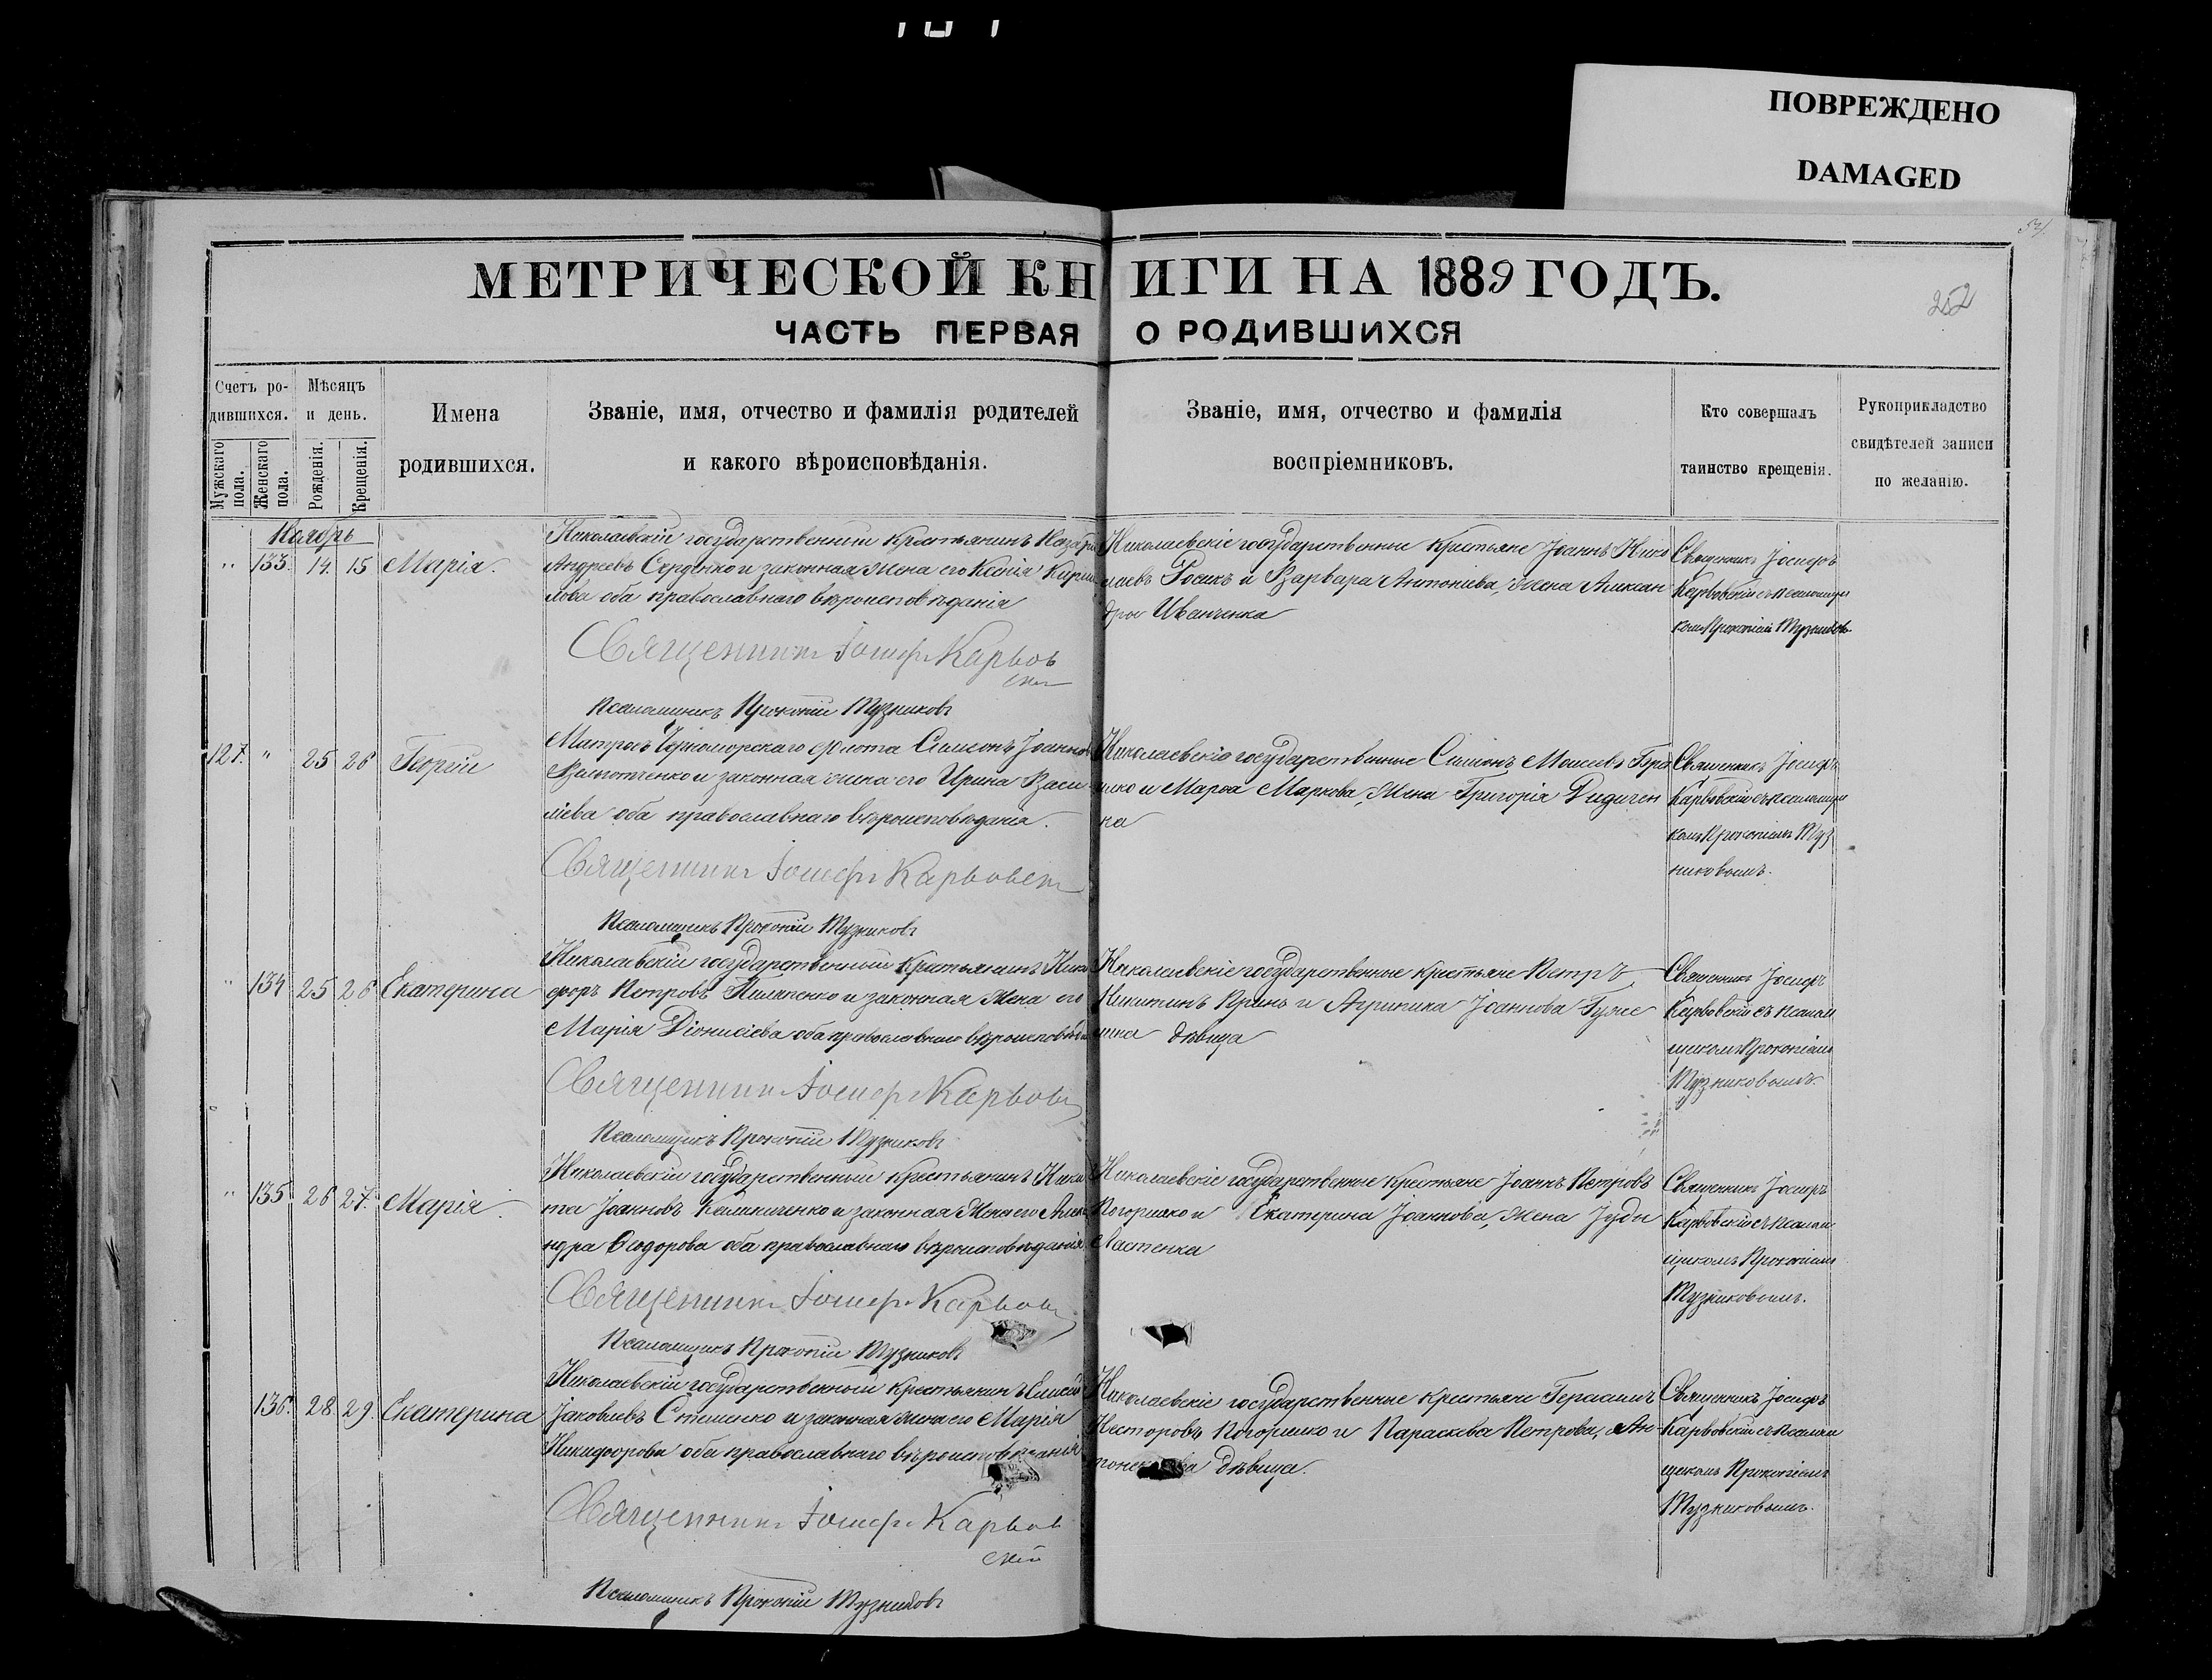 ПОВРЕЖДЕНО
DAMAGED
МЕТРИЧЕСКОЙ КНИГИ НА 1889 ГОДЪ.
252
ЧАСТЬ ПЕРВАЯ О РОДИВШИХСЯ
Счетъ ро-
дившихся.
Мужскаго
пола.
Женскаго
пола.
Мѣсяцъ
и день.
Рожденія.
Крещенія.
Имена
родившихся.
Званіе, имя, отчество и фамилія родителей
и какого вѣроисповѣданія.
Званіе, имя, отчество и фамилія
воспріемниковъ.
Кто совершалъ
таинство крещенія.
Рукоприкладство
свидѣтелей записи
по желанію.
Ноябрь
" 133. 14. 15 Марія.
Николаевскій государственный крестьянинъ
Андреевъ Серденко и законная жена его Ксенія Кирил
лова оба православнаго вѣроисповѣданія
Священникъ Іосифъ Карвов
скій
Псаломщикъ Прокопій Тузниковъ
Николаевскіе государственные крестьяне Іоаннъ Нико
лаевъ Госикъ и Варвара Антоніева, жена Алексан
дра Иванченка
Священникъ Іосифъ
Карвовскій съ псаломщи
комъ Прокопіемъ
127. " 25 26 Георгій
Матросъ Черноморскаго флота Симеонъ Іоанновъ
и законная жена его Ирина Васи
ліева оба православнаго вѣроисповѣданія.
Священникъ Іосифъ Карвовскі
Псаломщикъ Прокопій Тузниковъ
Николаевскіе государственные Симеонъ Моисеевъ
и Марфа Маркова, жена Григорія Дидичен
ка
Священникъ Іосифъ
Карвовскій съ псаломщи
комъ Прокопіемъ Туз
никовымъ.
" 134 25 26 Екатерина
Николаевскій государственный крестьянинъ Ники
форъ Петровъ Пилипенко и законная жена его
Марія Діонисіева оба православнаго
Священникъ Іосифъ Карвов
Псаломщикъ Прокопій Тузниковъ
Николаевскіе государственные крестьяне Петръ
Никитинъ и Агрипина Іоаннова Гуже
дѣвица
Священникъ Іосифъ
Карвовскій съ псалом
щикомъ Прокопіемъ
Тузниковымъ.
" 135 26 27. Марія.
Николаевскій государственный крестьянинъ Ники
та Іоанновъ Калиниченко и законная жена его Алекса
ндра Ѳеодорова оба православнаго вѣроисповѣданія
Священникъ Іосифъ Карвов
Псаломщикъ Прокопій Тузниковъ
Николаевскіе государственные крестьяне Іоаннъ Петровъ
Погорилко и Екатерина Іоаннова, жена Іуды
Ластенка
Священникъ Іосифъ
Карвовскій съ псалом
щикомъ Прокопіемъ
Тузниковымъ.
136. 28. 29. Екатерина
Николаевскій государственный крестьянинъ Елисей
Іаковлевъ Стешенко и законная жена его Марія
Никифорова оба православнаго вѣроисповѣданія
Священникъ Іосифъ Карвов
скій
Псаломщикъ Прокопій Тузниковъ
Николаевскіе государственные крестьяне Герасимъ
Несторовъ Погорилко и Параскева Петрова,
дѣвица.
Священникъ Іосифъ
Карвовскій съ псалом
щикомъ Прокопіемъ
Тузниковымъ.